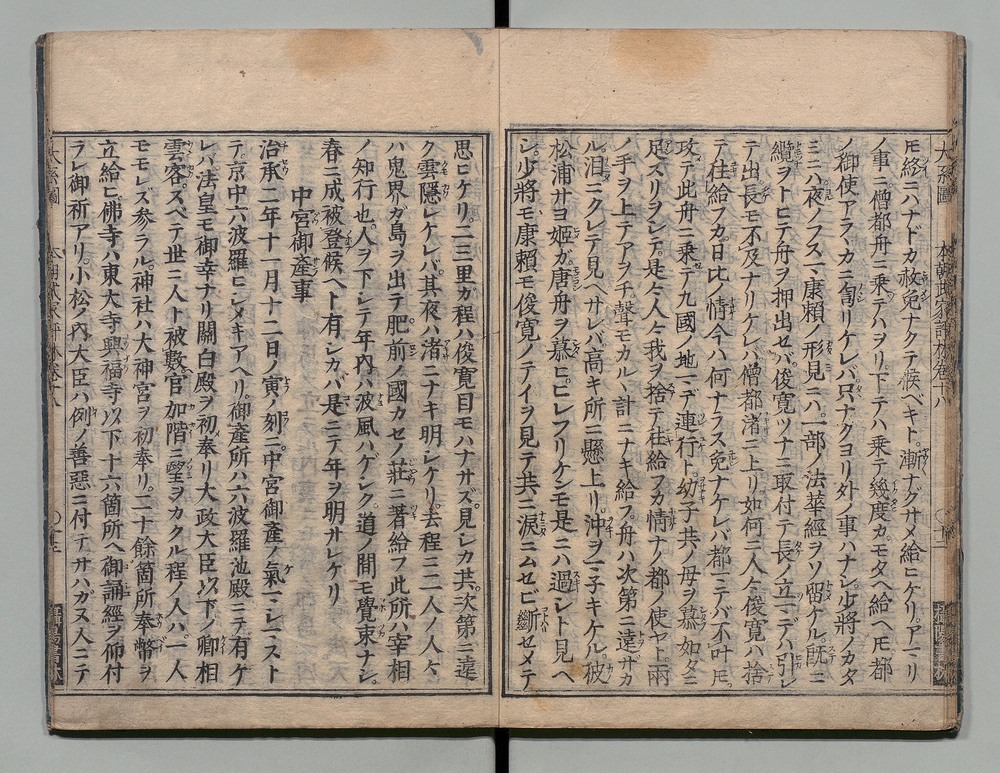 モ終ニハナドカ赦免ナクテ候ベキト漸ナグサメ給ヒケリアマリ
ノ事ニ僧都舟ニ乗テハヲリ下テハ乗テ幾度カモタヘ給ヘ𪜈都
ノ御使アラヽカニ匐リケレバ只ナクヨリ外ノ事ハナシ少將ノカタ
ミニハ夜ノフスマ康賴ノ形見ニハ一部ノ法華經ヲソ留ケル既ニ
纜ヲトヒテ舟ヲ押出セバ俊寛ツナニ取付テ長ノ立マデハ引レ
テ出長モ不及ナリケレバ僧都渚ニ上リ如何ニ人々俊寛ハ捨
テ在給フカ日比ノ情今ハ何ナラス免ナケレバ都マテバ不叶𪜈
攻テ此舟ニ乗テ九國ノ地マデ連行ト幼子共ノ母ヲ慕如ダニ
足スリヲシテ是人々我ヲ捨テ在給フカ情ナノ都ノ使ヤト兩
ノ手ヲ上テアヲチ聲モカルヽ計ニナキ給フ舟ハ次第ニ遠サカ
ル泪ニクレテ見ヘサレバ高キ所ニ懸上リ沖ヲマ子キケル彼
松浦サヨ姫ガ唐舟ヲ慕ヒヒレフリケンモ是ニハ過シト見ヘ
シ少將モ康賴モ俊寛ノテイヲ見テ共ニ淚ニムセビ斷セメテ
思ヒケリ二三里カ程ハ俊寛目モハナサズ見シカ共次第ニ遠
ク雲隱レケレバ其夜ハ渚ニナキ明シケリ去程ニ二人ノ人々
ハ鬼界ガ島ヲ出テ肥前ノ國カセノ莊ニ著給フ此所ハ宰相
ノ知行也人ヲ下シテ年内ハ波風ハゲシク道ノ間モ覺束ナシ
春ニ成被登候ヘト有シカバ是ニテ年ヲ明サレケリ
中宮御產事
治承二年十一月十二日ノ寅ノ刻ニ中宮御產ノ氣マシマスト
テ京中六波羅ヒシメキアヘリ御產所ハ六波羅池殿ニテ有ケ
レバ法皇モ御幸ナリ關白殿ヲ初奉リ大政大臣以下ノ卿相
雲客スベテ世ニ人ト被數官加階ニ望ヲカクル程ノ人ハ一人
モモレズ參ラル神社ハ大神宮ヲ初奉リ二十餘箇所奉幣ヲ
立給ヒ佛寺ハ東大寺興福寺以下十六箇所ヘ御誦經ヲ仰付
ラレ御祈アリ小松ノ內大臣ハ例ノ善惡ニ付テサハガヌ人ニテ